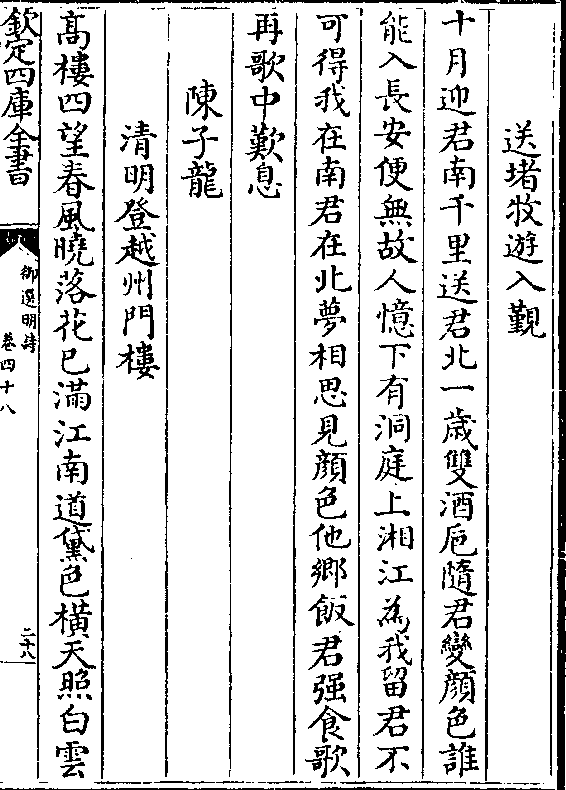 送堵牧遊入覲
十月迎君南千里送君北一歲雙酒卮隨君變顔色誰
能入長安便無故人憶下有洞庭上湘江為我留君不
可得我在南君在北夢相思見顔色他鄉飯君强食歌
再歌中歎息
陳子龍
清明登越州門樓
髙樓四望春風曉落花已滿江南道黛色横天照白雲
欽定四庫全書
御選明詩
卷四十八
二十八